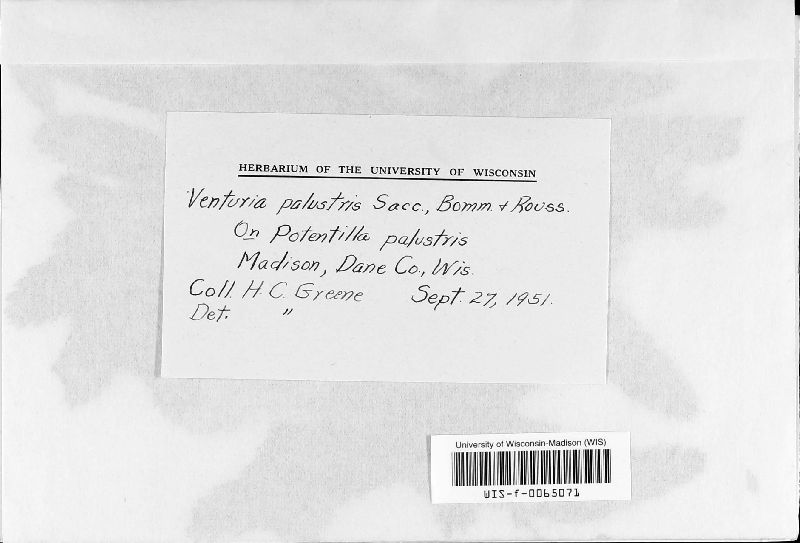 HERBARIUM OF THE UNIVERSITY OF WISCONSIN
Venturia palustris Sacc., Bomm. & Rouss.
On Potentilla palustris
Madison, Dane Co., Wis.
Coll. H. C. Greene Sept. 27, 1951.
Det. "
University of Wisconsin-Madison (WIS)
WIS-f-0065071